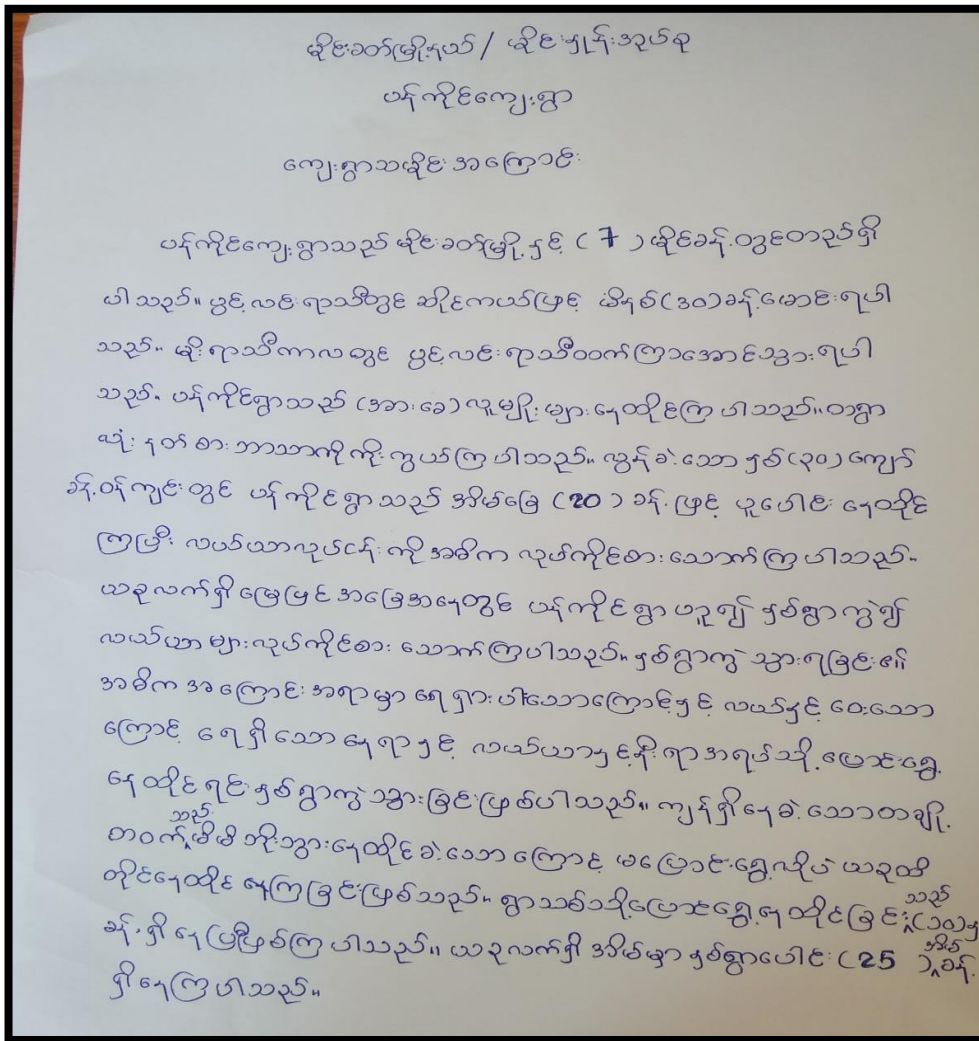 မိုင်းခတ်မြို့နယ် / မိုင်းဟွန်းအုပ်စု
ပန်ကိုင်ကျေးရွာ
ကျေးရွာသမိုင်းအကြောင်း
ပန်ကိုင်ကျေးရွာသည် မိုင်းခတ်မြို့နှင့် ( 7 ) မိုင်ခန့်တွင်တည်ရှိ
ပါသည်။ ပွင့်လင်းရာသီတွင် ဆိုင်ကယ်ဖြင့် မိနစ်(၃၀)ခန့်မောင်းရပါ
သည်။ မိုးရာသီကာလတွင် ပွင့်လင်းရာသီထက်ကြာအောင်သွားရပါ
သည်။ ပန်ကိုင်ရွာသည် (အားခေ) လူမျိုးများနေထိုင်ကြပါသည်။တရွာ
လုံး နတ်စားဘာသာကိုကိုးကွယ်ကြပါသည်။ လွန်ခဲ့သောနှစ်(၃၀)ကျော်
ခန့်ဝန်းကျင်းတွင် ပန်ကိုင်ရွာသည် အိမ်ခြေ (20) ခန့်ဖြင့် ပူပေါင်းနေထိုင်
ကြပြီး လယ်ယာလုပ်ငန်းကို အဓိက လုပ်ကိုင်စားသောက်ကြပါသည်။
ယခုလက်ရှိမြေပြင်အခြေအနေတွင် ပန်ကိုင်ရွာဟူ၍ နှစ်ရွာကွဲ၍
လယ်ယာများလုပ်ကိုင်စားသောက်ကြပါသည်။နှစ်ရွာကွဲသွားရခြင်း၏
အဓိကအကြောင်းအရာမှာ ရေရှားပါးသောကြောင့်နှင့် လယ်နှင့်ဝေးသော
ကြောင့် ရေရှိသောနေရာနှင့် လယ်ယာနှင့်နီးရာအရပ်သို့ပြောင်းရွှေ့
နေထိုင်ရင်းနှစ်ရွာကွဲသွားခြင်းဖြစ်ပါသည်။ ကျန်ရှိနေခဲ့သောတချို့
တဝက်သည်မိမိဘိုးဘွားနေထိုင်ခဲ့သောကြောင့် မပြောင်းရွှေ့လိုပဲ ယခုထိ
တိုင်နေထိုင်နေကြခြင်းဖြစ်သည်။ ရွာသစ်သို့ပြောင်းရွှေ့နေထိုင်ခြင်းသည်(၁၀)နှစ်
ခန့်ရှိနေပြီဖြစ်ကြပါသည်။ ယခုလက်ရှိအိမ်မှာနှစ်ရွာပေါင်း (25 )အိမ်ခန့်
ရှိနေကြပါသည်။